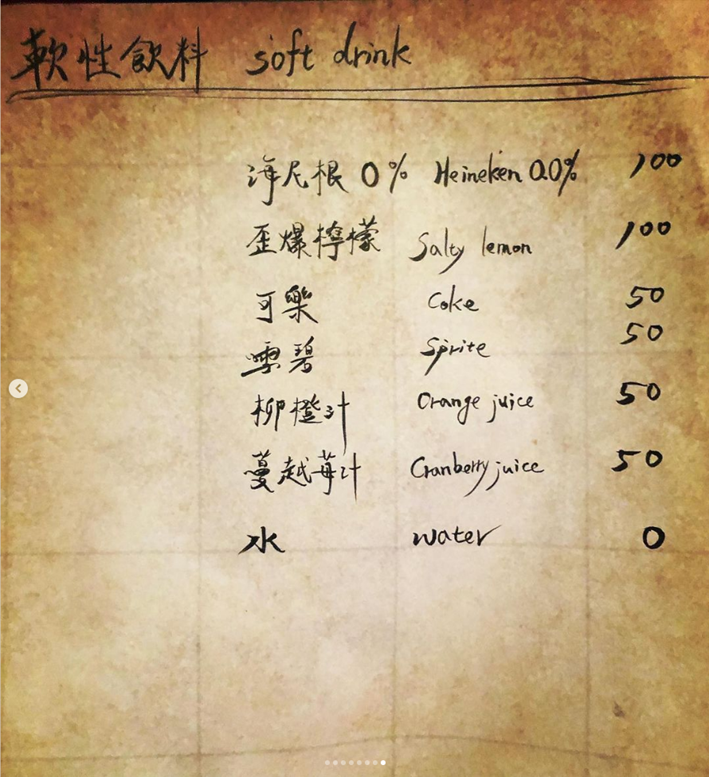 軟性飲料 soft drink
海尼根 0% Heineken 0.0% 100
歪爆檸檬 Salty lemon 100
可樂 Coke 50
雪碧 Sprite 50
柳橙汁 Orange juice 50
蔓越莓汁 Cranberry juice 50
水 water 0